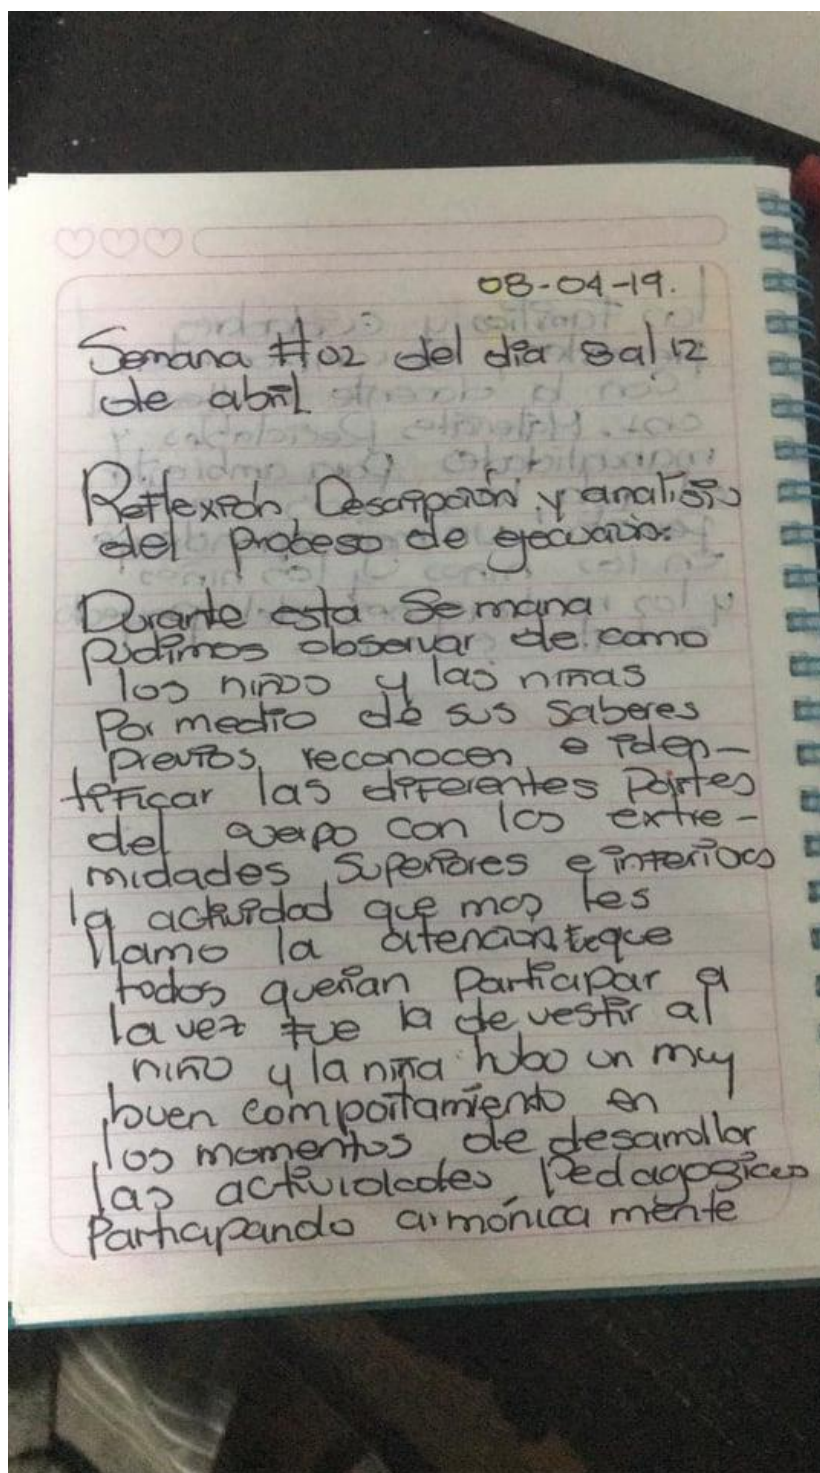 08-04-19.
Semana #02 del día 8 al 12
de abril
Reflexión Descripción y analisis
del proceso de ejecución:
Durante esta Semana
pudimos observar de como
los niños y las niñas
Por medio de sus saberes
previos, reconocen e iden-
tificar las diferentes Partes
del cuerpo con los extre-
midades Superiores e inferiores
la actividad que mas les
llamo la atencion que
todos querian Participar a
la vez fue la de vestir al
niño y la niña hubo un muy
buen comportamiento en
los momentos de desarrollar
las actividades Pedagogicas
Participando armónica mente